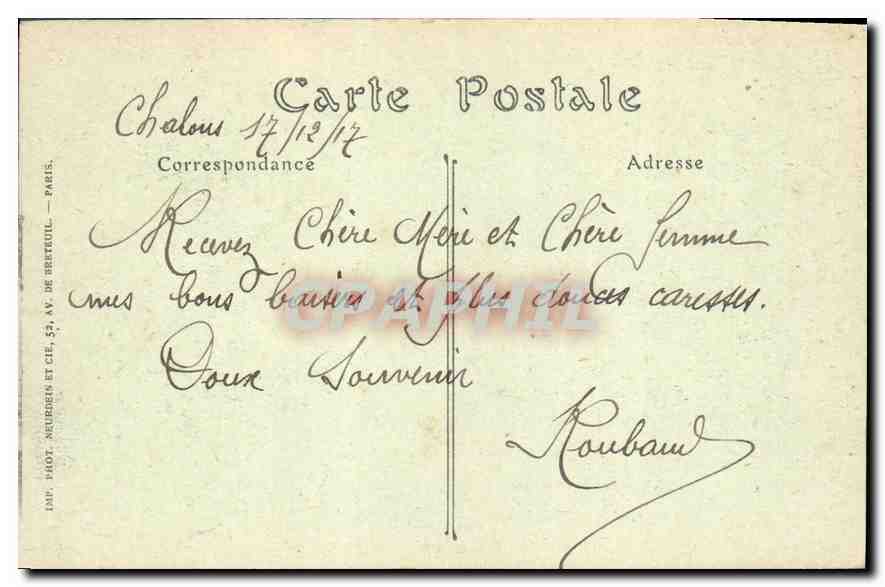 Carte Postale
Chalons 17/12/17
Correspondance
Adresse
Recevez Chère Mère et Chère femme
mes bons baisers et plus douces caresses.
Doux Souvenir
Roubaud
CPAPHIL
IMP. PHOT. NEURDEIN ET CIE, 52, AV. DE BRETEUIL. — PARIS.